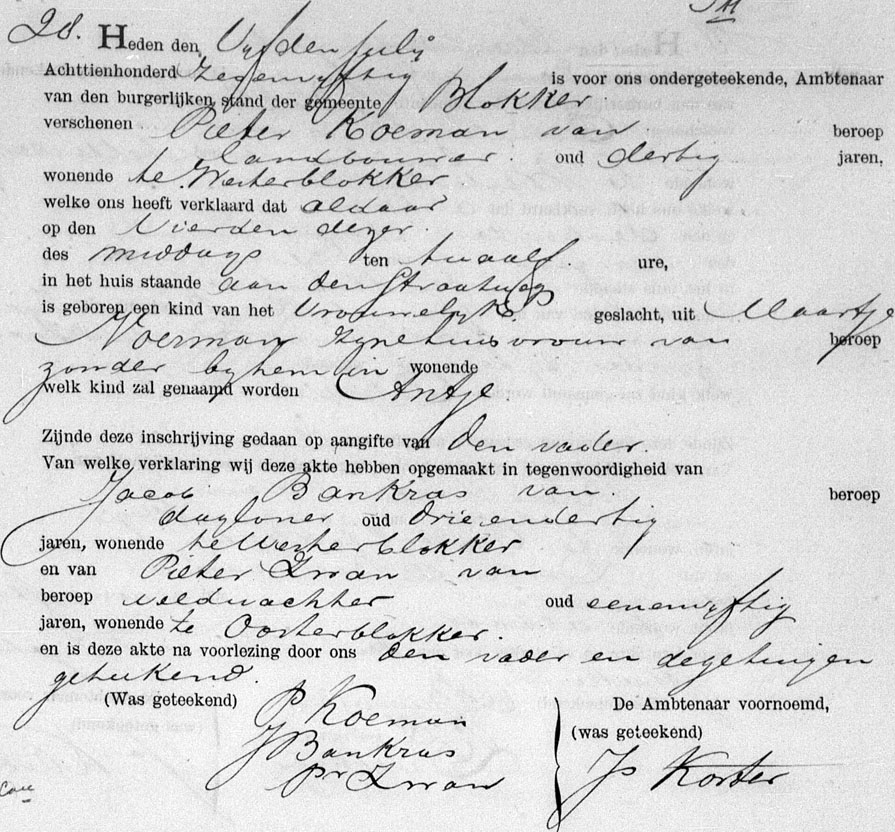 28. Heden den Vyfden July
Achttienhonderd Zevenenvyftig is voor ons ondergeteekende, Ambtenaar
van den burgerlijken stand der gemeente Blokker
verschenen Pieter Koeman van beroep
Landbouwer. oud dertig jaren,
wonende te Westerblokker
welke ons heeft verklaard dat aldaar
op den Vierden dezer
des middags ten twaalf ure,
in het huis staande aan den Straatweg
is geboren een kind van het Vrouwelyk geslacht, uit Maartje
Noerman zyne huisvrouw van beroep
zonder by hem in wonende
welk kind zal genaamd worden Antje.
Zijnde deze inschrijving gedaan op aangifte van den vader.
Van welke verklaring wij deze akte hebben opgemaakt in tegenwoordigheid van
Jacob Bankras van beroep
dagloner oud drieendertig
jaren, wonende te Westerblokker
en van Pieter Zwan van
beroep veldwachter oud eenenvyftig
jaren, wonende te Oosterblokker.
en is deze akte na voorlezing door ons den vader en degetuigen
geteekend.
(Was geteekend) De Ambtenaar voornoemd,
P Koeman (was geteekend)
J Bankras
Pr Zwan Js Korter